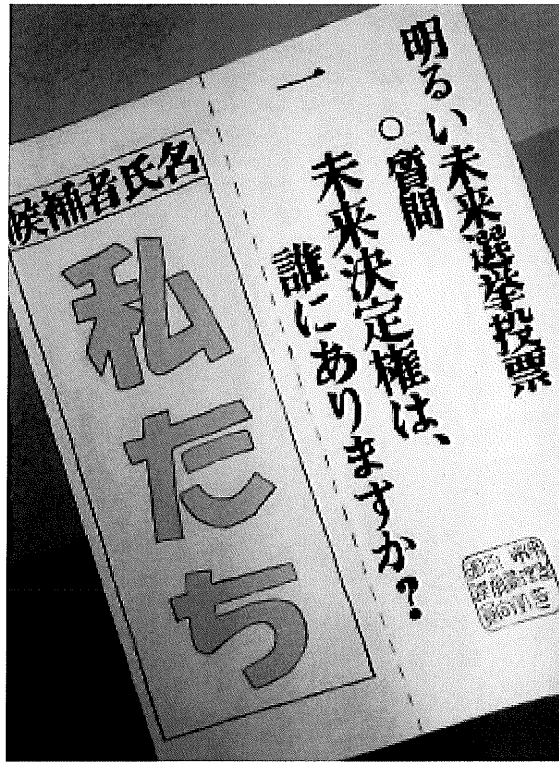 明るい未来選挙投票
○質問
一 未来決定権は、
誰にありますか?
候補者氏名
私たち